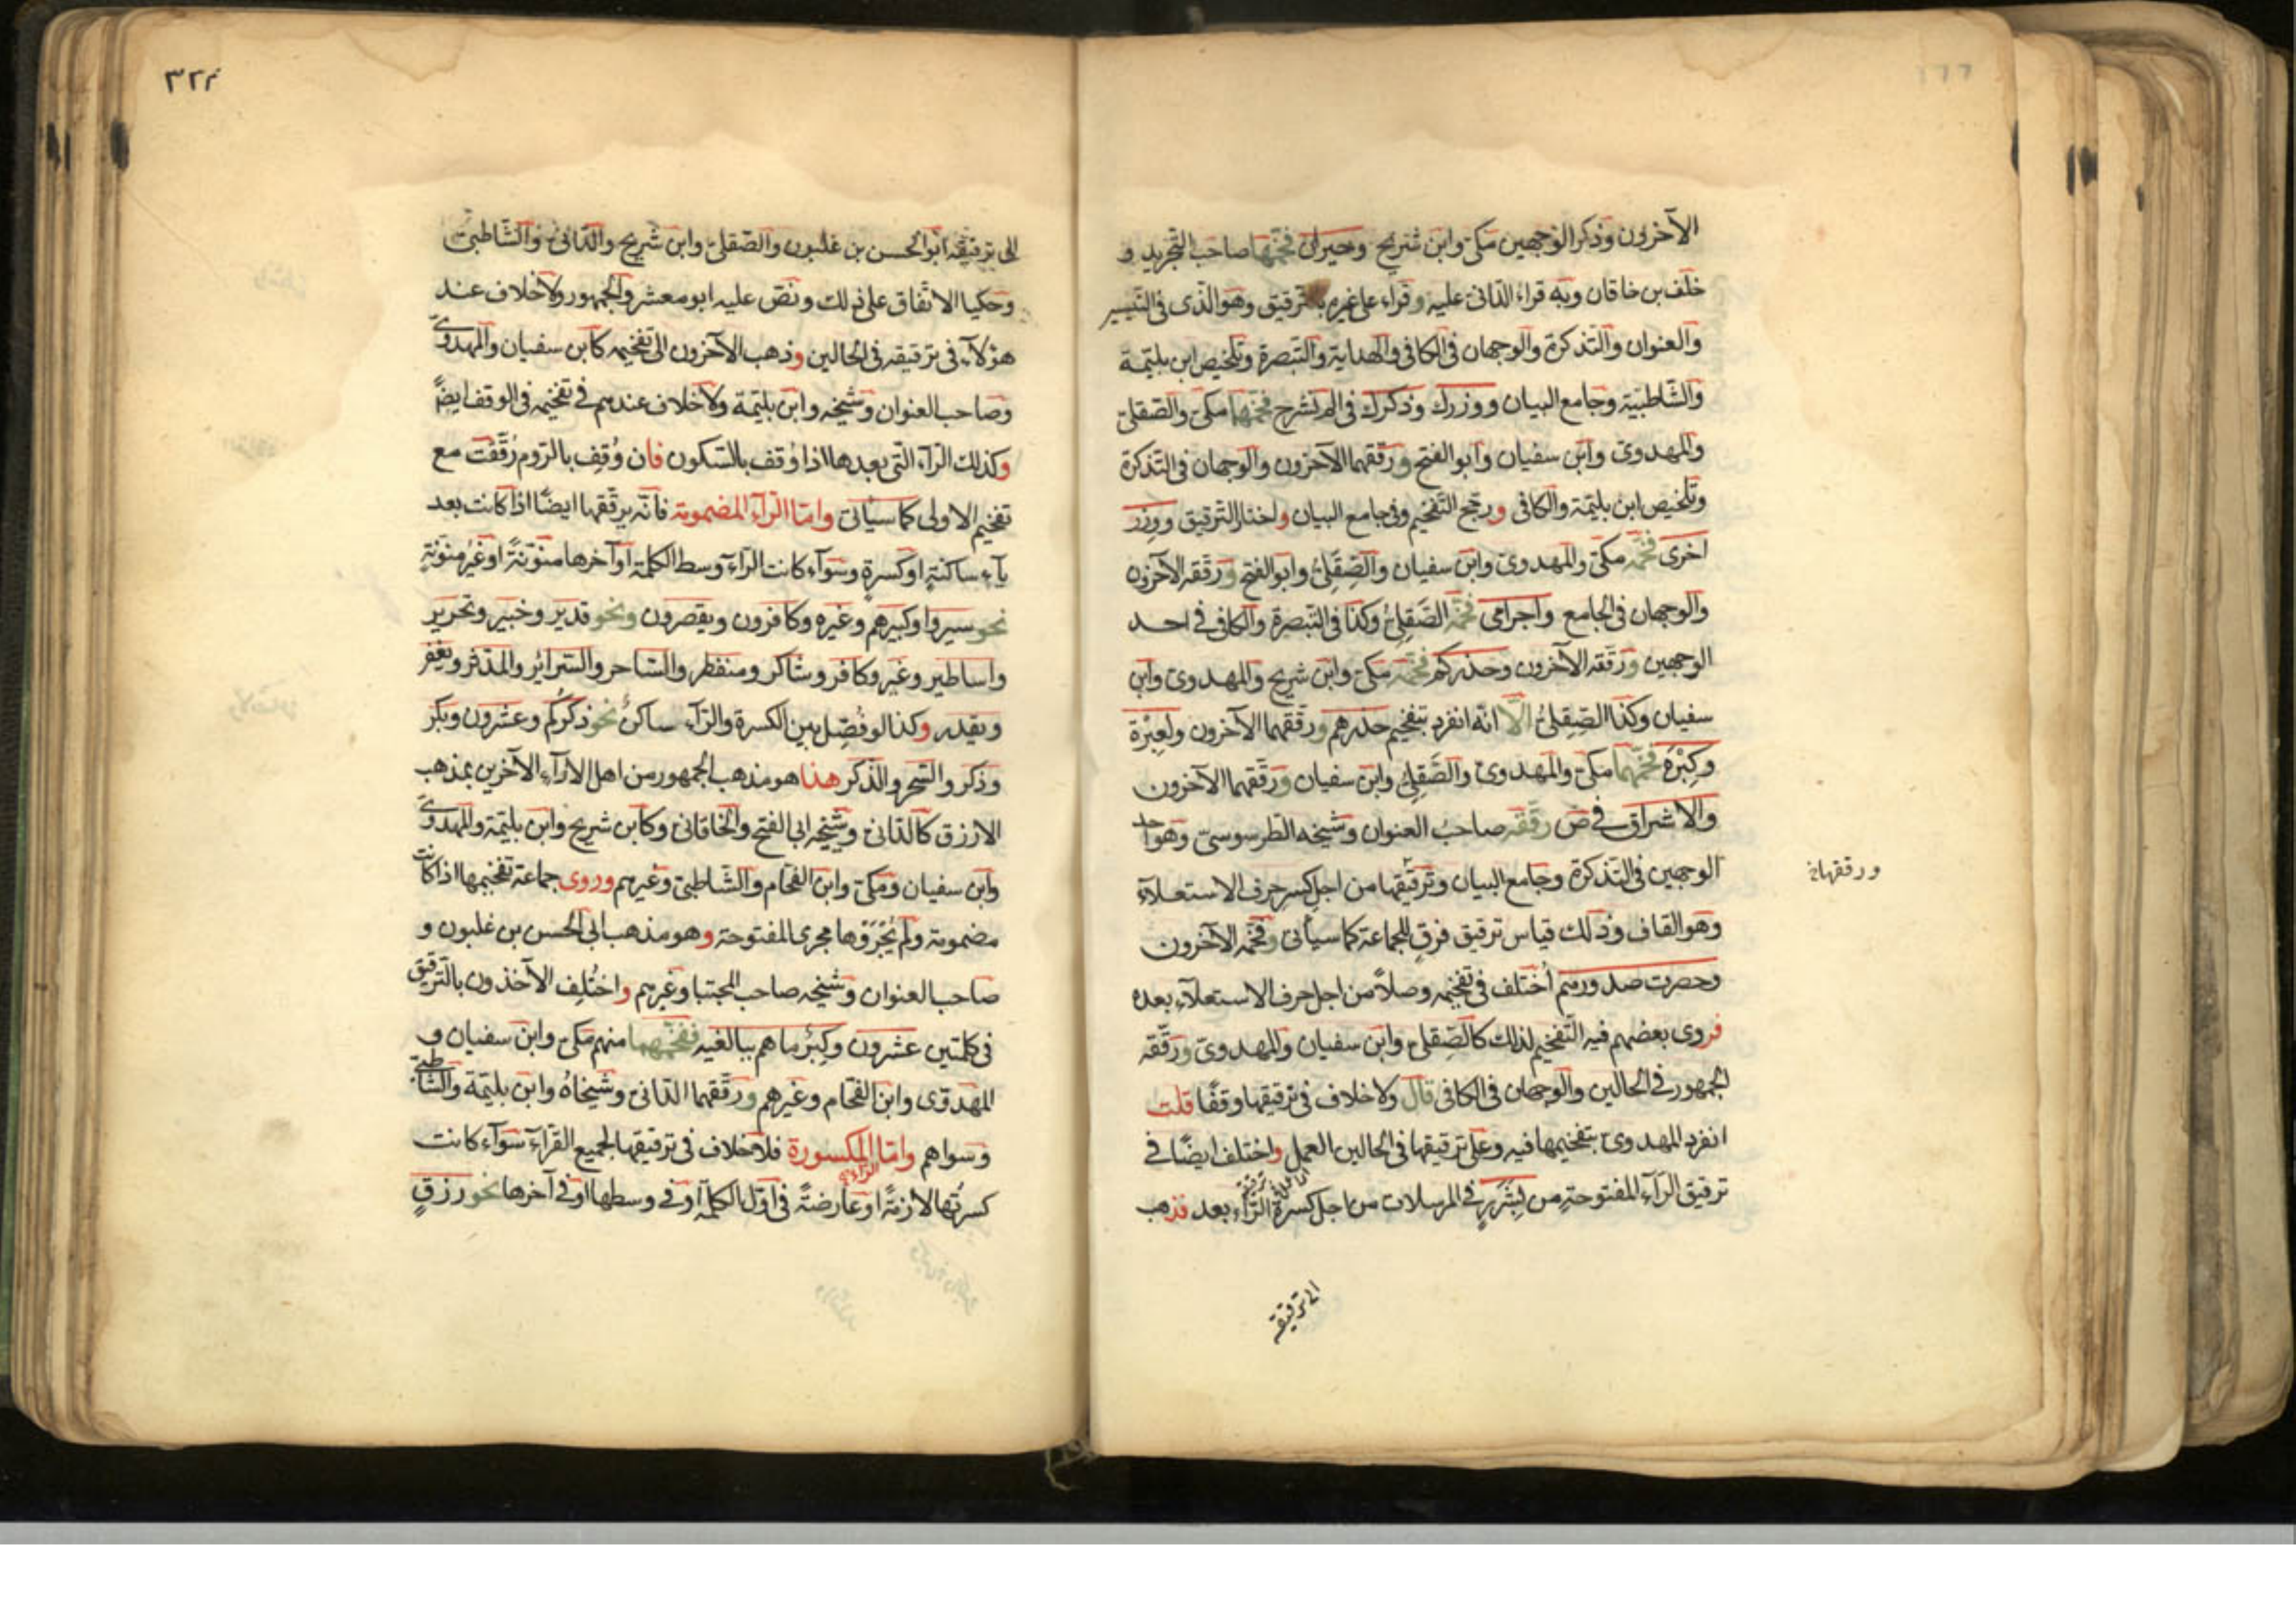 الآخرون وذكر الوجهين مكى وابن شريح وحيران فخمها صاحب التجريد و
خلف بن خاقان وبه قراء الدانى عليه وقراء على غيره بالترقيق وهو الذى فى التيسير
والعنوان والتذكرة والوجهان فى الكافى والهداية والتبصرة وتلخيص ابن بليمة
والشاطبية وجامع البيان ووزرك وذكرك فى الم نشرح فخمها مكى والصقلى
والمهدوى وابن سفيان وابو الفتح ورققهما الآخرون والوجهان فى التذكرة
وتلخيص ابن بليمة والكافى ورجح التفخيم وفى جامع البيان واختار الترقيق ووزر
اخرى فخمه مكى والمهدوى وابن سفيان والصِّقَلِىُّ وابو الفتح ورققه الآخرون
والوجهان فى الجامع واجرامى فخمه الصَّقَلِىُّ وكذا فى التبصرة والكافى فى احد
الوجهين ورققه الآخرون وحذركم فخمه مكى وابن شريح والمهدوى وابن
سفيان وكذا الصِّقِلىُّ الّا انه انفرد بتفخيم حذرهم ورققهما الآخرون ولعِبْرَة
وكِبْرَهُ فخمهما مكى والمهدوى والصَّقِلى وابن سفيان ورققهما الآخرون
والاشراق فى ص رققه صاحب العنوان وشيخه الطرسوسى وهو احد
الوجهين فى التذكرة وجامع البيان وترقيقها من اجل كسر حرف الاستعلاء
وهو القاف وذلك قياس ترقيق فرق للجماعة كما سيأتى وفخمه الآخرون
وحصرت صدورهم أختلف فى تفخيمه وصلاً من اجل حرف الاستعلاء بعده
فروى بعضهم فيه التفخيم لذلك كالصِّقلى وابن سفيان والمهدوى ورققه
الجمهور فى الحالين والوجهان فى الكافى قال ولا خلاف فى ترقيقها وقفًا قلت
انفرد المهدوى بتفخيمها فيه وعلى ترقيقها فى الحالين العمل واختلف ايضًا فى
ترقيق الرآء المفتوحة من بِشَرَرٍ فى المرسلات من اجل كسرة الرَّاء بعد فذهب
ورققها
الى ترقيقه
٣٢٢
الى ترقيقه ابو الحسن بن غلبون والصقلى وابن شريح والدانى والشاطبى
وحكيا الاتفاق على ذلك ونص عليه ابو معشر والجمهور ولا خلاف عند
هؤلآء فى ترقيقه فى الحالين وذهب الآخرون الى تفخيمه كابن سفيان والمهدوى
وصاحب العنوان وشيخه وابن بليمة ولا خلاف عندهم فى تفخيمه فى الوقف ايضًا
وكذلك الرآء التى بعدها اذا وُقف بالسكون فان وُقِف بالرَّوم رُقّقت مع
تفخيم الاولى كما سيأتى وامّا الرآء المضمومة فانّه يرققها ايضًا اذا كانت بعد
يآءٍ ساكنةٍ او كسرةٍ وسوآء كانت الرآء وسط الكلمة او آخرها منوّنةً او غيرُ منوّنةٍ
نحو سيروا وكبيرهم وغيره وكافرون ويقصرون ونحو قدير وخبير وتحرير
واساطير وغير وكافر وشاكر ومنفطر والساحر والسرائر والمدثر ويغفر
ويقدر وكذا لو فُصِل بين الكسرة والرآء ساكنٌ نحو ذكركُم وعشرون وبكر
وذكر والسحر والذكر هذا هو مذهب الجمهور من اهل الادآء الآخرين بمذهب
الازرق كالدانى وشيخه ابى الفتح والخاقانى وكابن شريح وابن بليمة والمهدوى
وابن سفيان ومكى وابن الفحام والشاطبى وغيرهم وروى جماعة تفخيمها اذا كانت
مضمومة ولم يُجْرُوها مجرى المفتوحة وهو مذهب ابى الحسن بن غلبون و
صاحب العنوان وشيخه صاحب المجتبا وغيرهم واختُلِف الآخذون بالترقيق
فى كلمتين عشرون وكِبْرُ ما هم ببالغيه ففخمهما منهم مكى وابن سفيان و
المهدوى وابن الفحام وغيرهم ورققهما الدانى وشيخاهُ وابن بليمة والشاطبى
وسواهم وامّا الرآء المكسورة فلا خلاف فى ترقيقها لجميع القرآء سوآء كانت
كسرتُها لازمةً او عارضةً فى اوّل الكلمة او فى وسطها او فى آخرها نحو رزقٍ